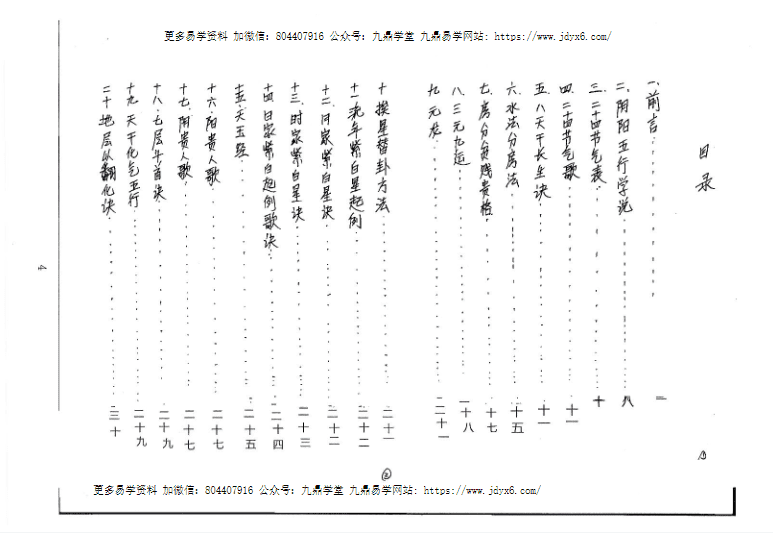 更多易学资料 加微信：804407916 公众号：九鼎学堂 九鼎易学网站：https://www.jdyx6.com/
目录
一.前言..................一
二.阴阳五行学说..................八
三.二十四节气表..................十
四.二十四节气歌..................十一
五.八天干长生诀..................十一
六.水法分房法..................十五
七.房分贫贱贵格..................十七
八.三元九运..................一十八
九.元龙..................二十一
①
十.挨星替卦方法..................二十一
十一.流年紫白星起例..................二十二
十二.月家紫白星诀..................二十二
十三.时家紫白星诀..................二十三
十四.日家紫白起例歌诀..................二十四
十五.天玉经..................二十五
十六.阳贵人歌..................二十七
十七.阴贵人歌..................二十七
十八.七层午首诀..................二十九
十九.天干化气五行..................二十九
二十.地层以翻化诀..................三十
②
4
更多易学资料 加微信：804407916 公众号：九鼎学堂 九鼎易学网站：https://www.jdyx6.com/